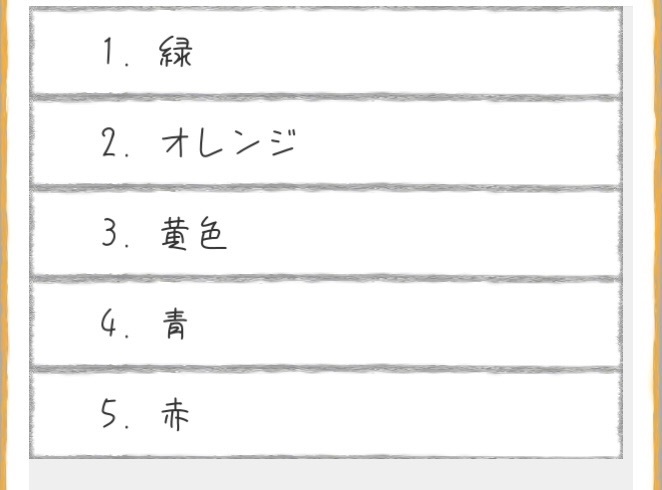 1. 緑
2. オレンジ
3. 黄色
4. 青
5. 赤